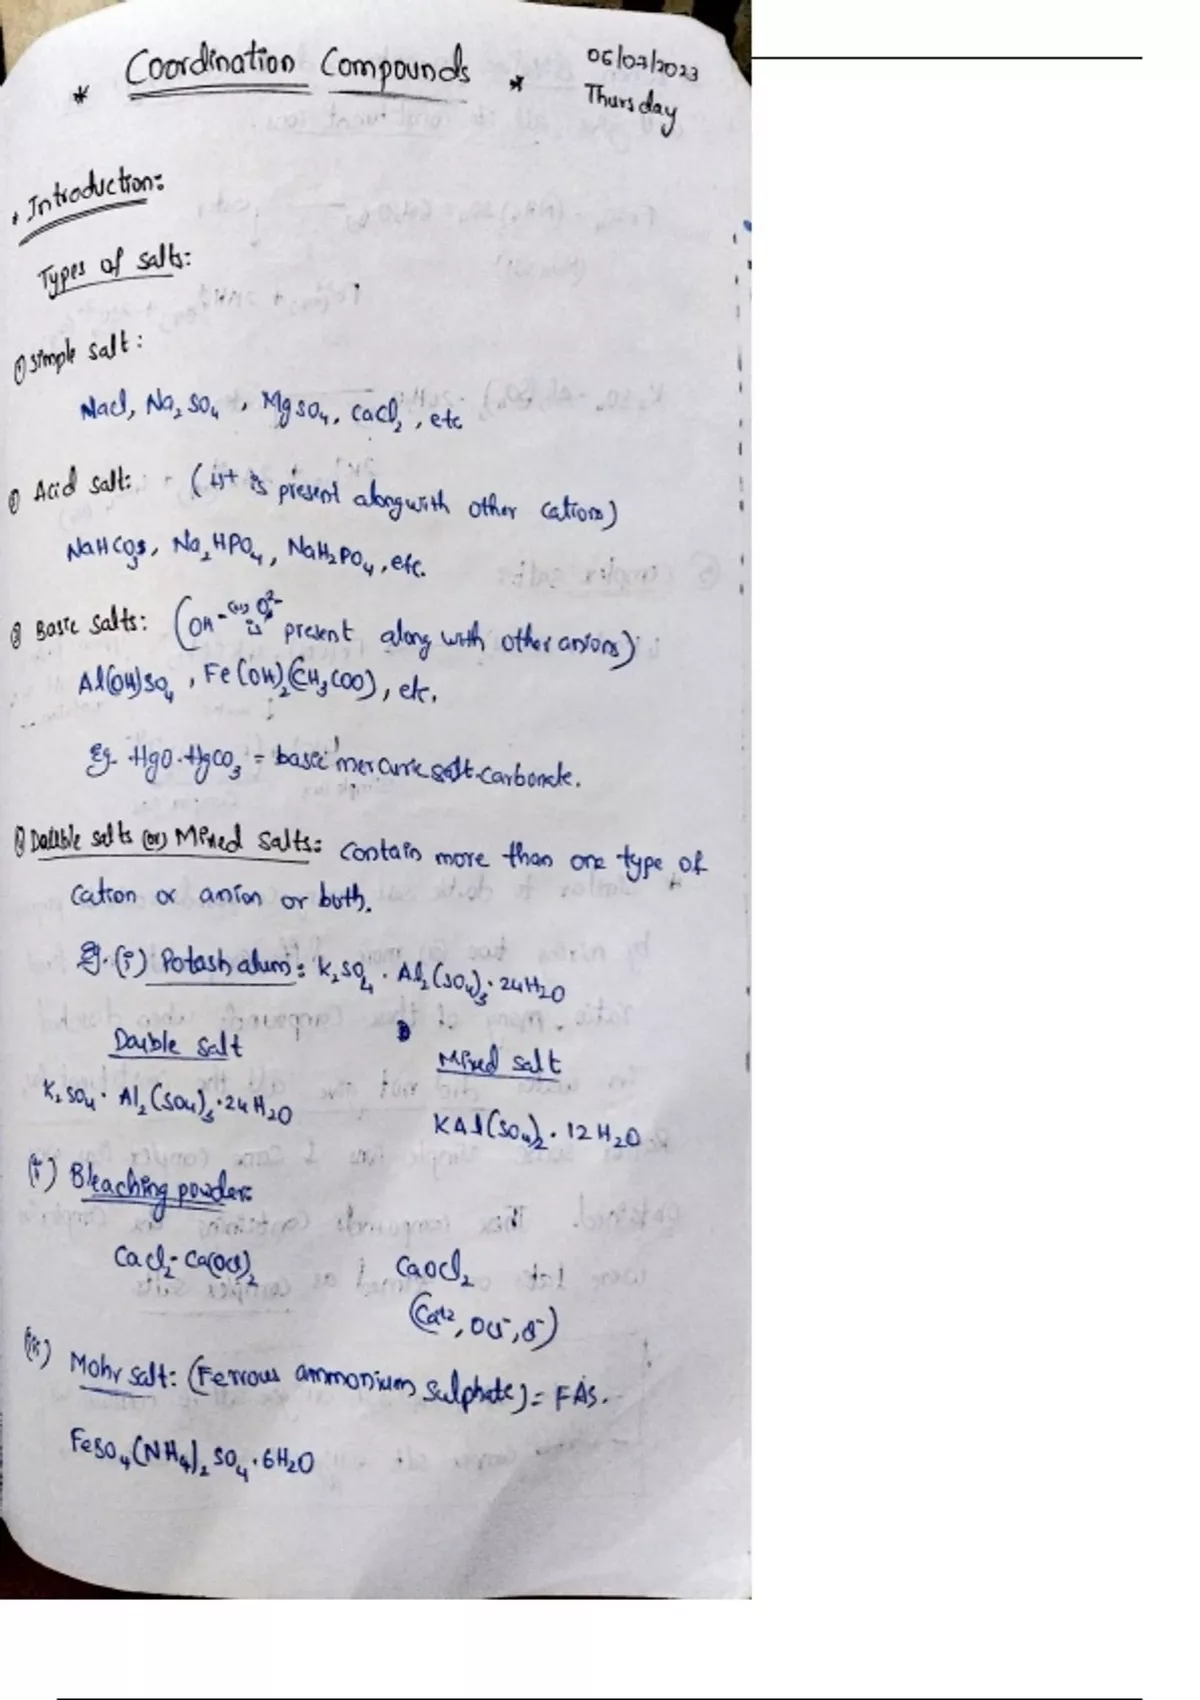 * Coordination Compounds *
06/07/2023
Thursday
* Introduction:
Types of salts:
① Simple salt:
NaCl, Na₂SO₄, MgSO₄, CaCl₂, etc
② Acid salt: (H+ is present alongwith other cations)
NaHCO₃, Na₂HPO₄, NaH₂PO₄, etc.
③ Basic salts: (OH⁻ (or) O²⁻ is present along with other anions)
Al(OH)SO₄, Fe(OH)₂(CH₃COO), etc.
Eg. HgO·HgCO₃ = basic mercuric salt carbonate.
④ Double salts (or) Mixed salts: contain more than one type of
cation or anion or both.
Eg. (i) Potash alum: K₂SO₄ · Al₂(SO₄)₃ · 24H₂O
Double salt Mixed salt
K₂SO₄ · Al₂(SO₄)₃ · 24H₂O KAl(SO₄)₂ · 12H₂O
Bleaching powder:
CaCl₂-Ca(OCl)₂ CaOCl₂
(Ca⁺², OCl⁻, Cl⁻)
(iii) Mohr salt: (Ferrous ammonium sulphate) = FAS.
FeSO₄(NH₄)₂SO₄·6H₂O